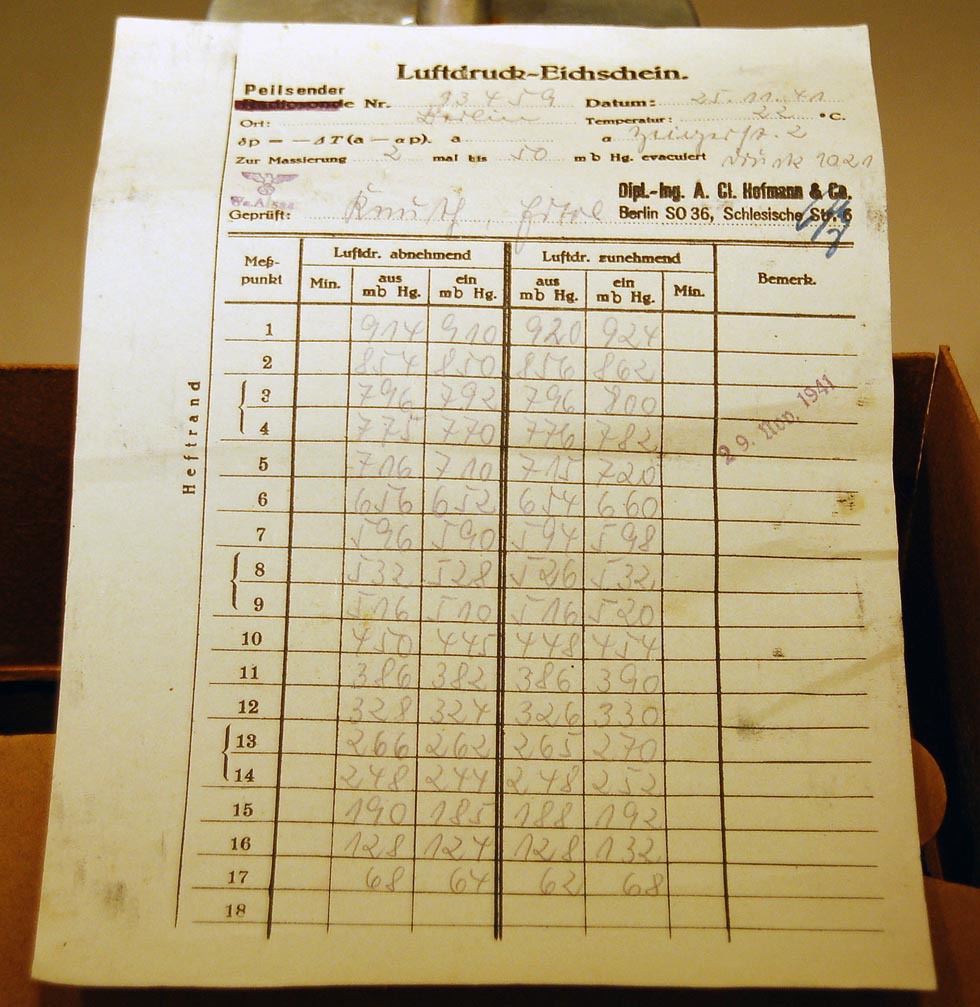 Luftdruck-Eichschein.
Peilsender
Radiosonde Nr. 93459 Datum: 25.11.41
Ort: Berlin Temperatur: 22 °C.
δp = — ΔT (a — αp). a α
Zur Massierung 2 mal bis 50 mb Hg. evacuiert Druck 1021
Dipl.-Ing. A. Cl. Hofmann & Co.
Geprüft: Berlin SO 36, Schlesische Str. 6
Meß-punkt Luftdr. abnehmend Luftdr. zunehmend Bemerk.
Min. aus mb Hg. ein mb Hg. aus mb Hg. ein mb Hg. Min.
1 914 910 920 924
2 854 850 856 862
3 796 792 796 800
4 775 770 776 782
29. Nov. 1941
5 716 710 715 720
6 656 652 654 660
7 596 590 594 598
8 532 528 526 532
9 516 510 516 520
10 450 445 448 454
11 386 382 386 390
12 328 324 326 330
13 266 262 265 270
14 248 244 248 252
15 190 185 188 192
16 128 124 128 132
17 68 64 62 68
18
Heftrand